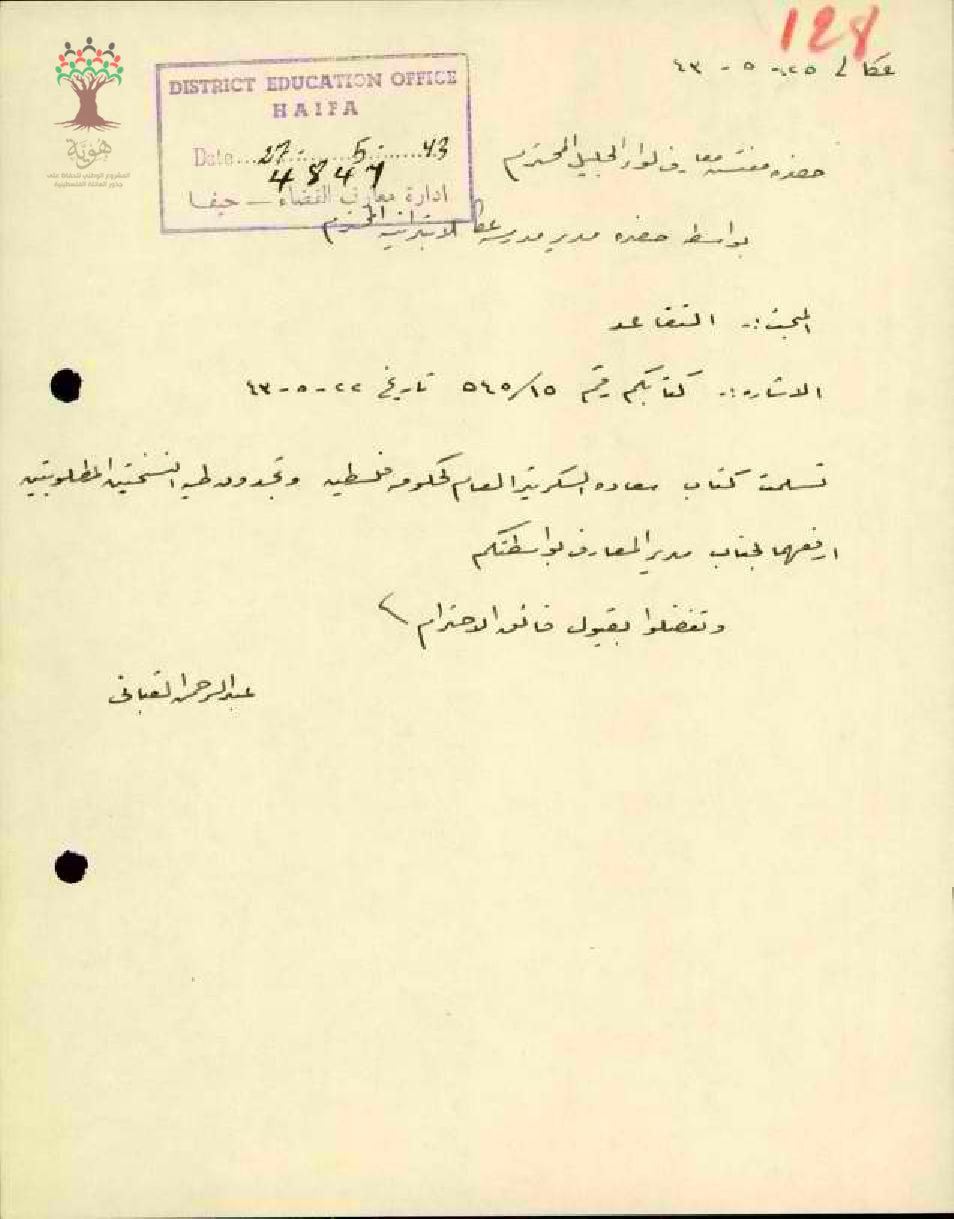 128
عكا في ٢٥-٥-٤٣
DISTRICT EDUCATION OFFICE
HAIFA
Date...27......5......43
4847
ادارة معارف القضاء — حيفا
هوية
المشروع الوطني للحفاظ على
جذور العائلة الفلسطينية
حضرة مفتش معارف لواء الجليل المحترم
بواسطة حضرة مدير مدرسة عكا الابتدائية المحترم
المبحث:- التقاعد
الاشارة:- كتابكم رقم ٥٤٥/١٥ تاريخ ٢٢-٥-٤٣
تسلمت كتاب سعادة السكرتير العام لحكومة فلسطين وتجدون طيه النسختين المطلوبتين
ارفعهما لجناب مدير المعارف بواسطتكم
وتفضلوا بقبول فائق الاحترام
عبد الرحمن القباني